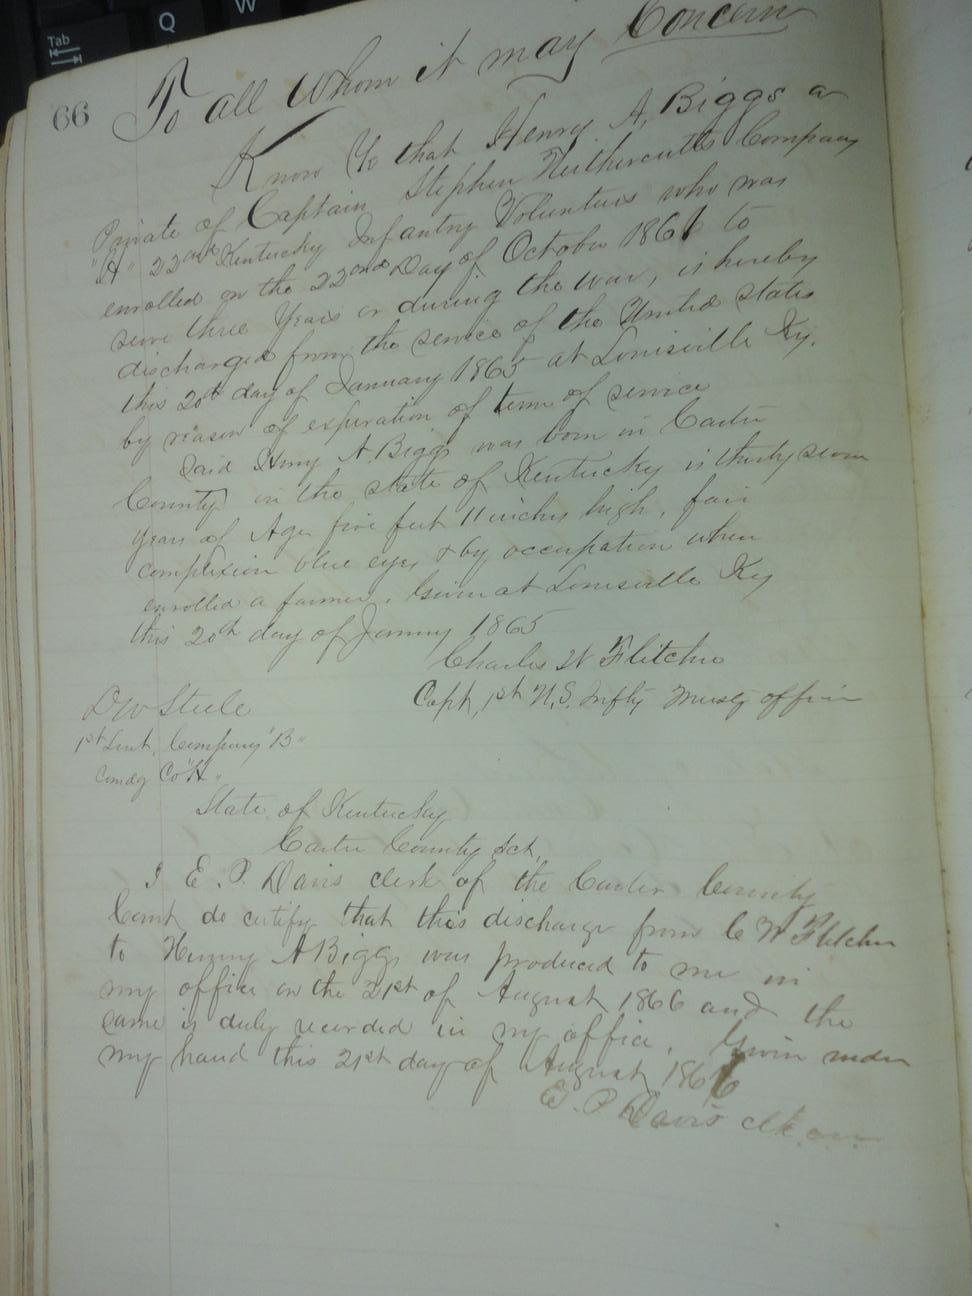 Tab
Q
W
66
To all Whom it may Concern
Know Ye that Henry A, Biggs a
Private of Captain Stephen Nethercutts Company
"H" 22nd Kentucky Infantry Volunteers who was
enrolled on the 22nd Day of October 1861 to
serve three Years or during the war, is hereby
discharged from the service of the United States
this 20th day of January 1865 at Louisville Ky.
by reason of expiration of term of service
Said Henry A. Biggs was born in Carter
County in the state of Kentucky is thirty seven
years of Age five feet 11 inches high, fair
complexion blue eyes & by occupation when
enrolled a farmer. Given at Louisville Ky
this 20th day of January 1865
Charles W Fletcher
Capt, 1st U,S. Infty Mustg officer
D W Steele
1st Lieut, Company "B"
Comdg Co "H"
State of Kentucky
Carter County Sct,
I E. P. Davis clerk of the Carter County
Court do certify that this discharge from C W Fletcher
to Henry A Biggs was produced to me in
my office on the 21st of August 1866 and the
same is duly recorded in my office, Given under
my hand this 21st day of August 1866
E. P Davis clk